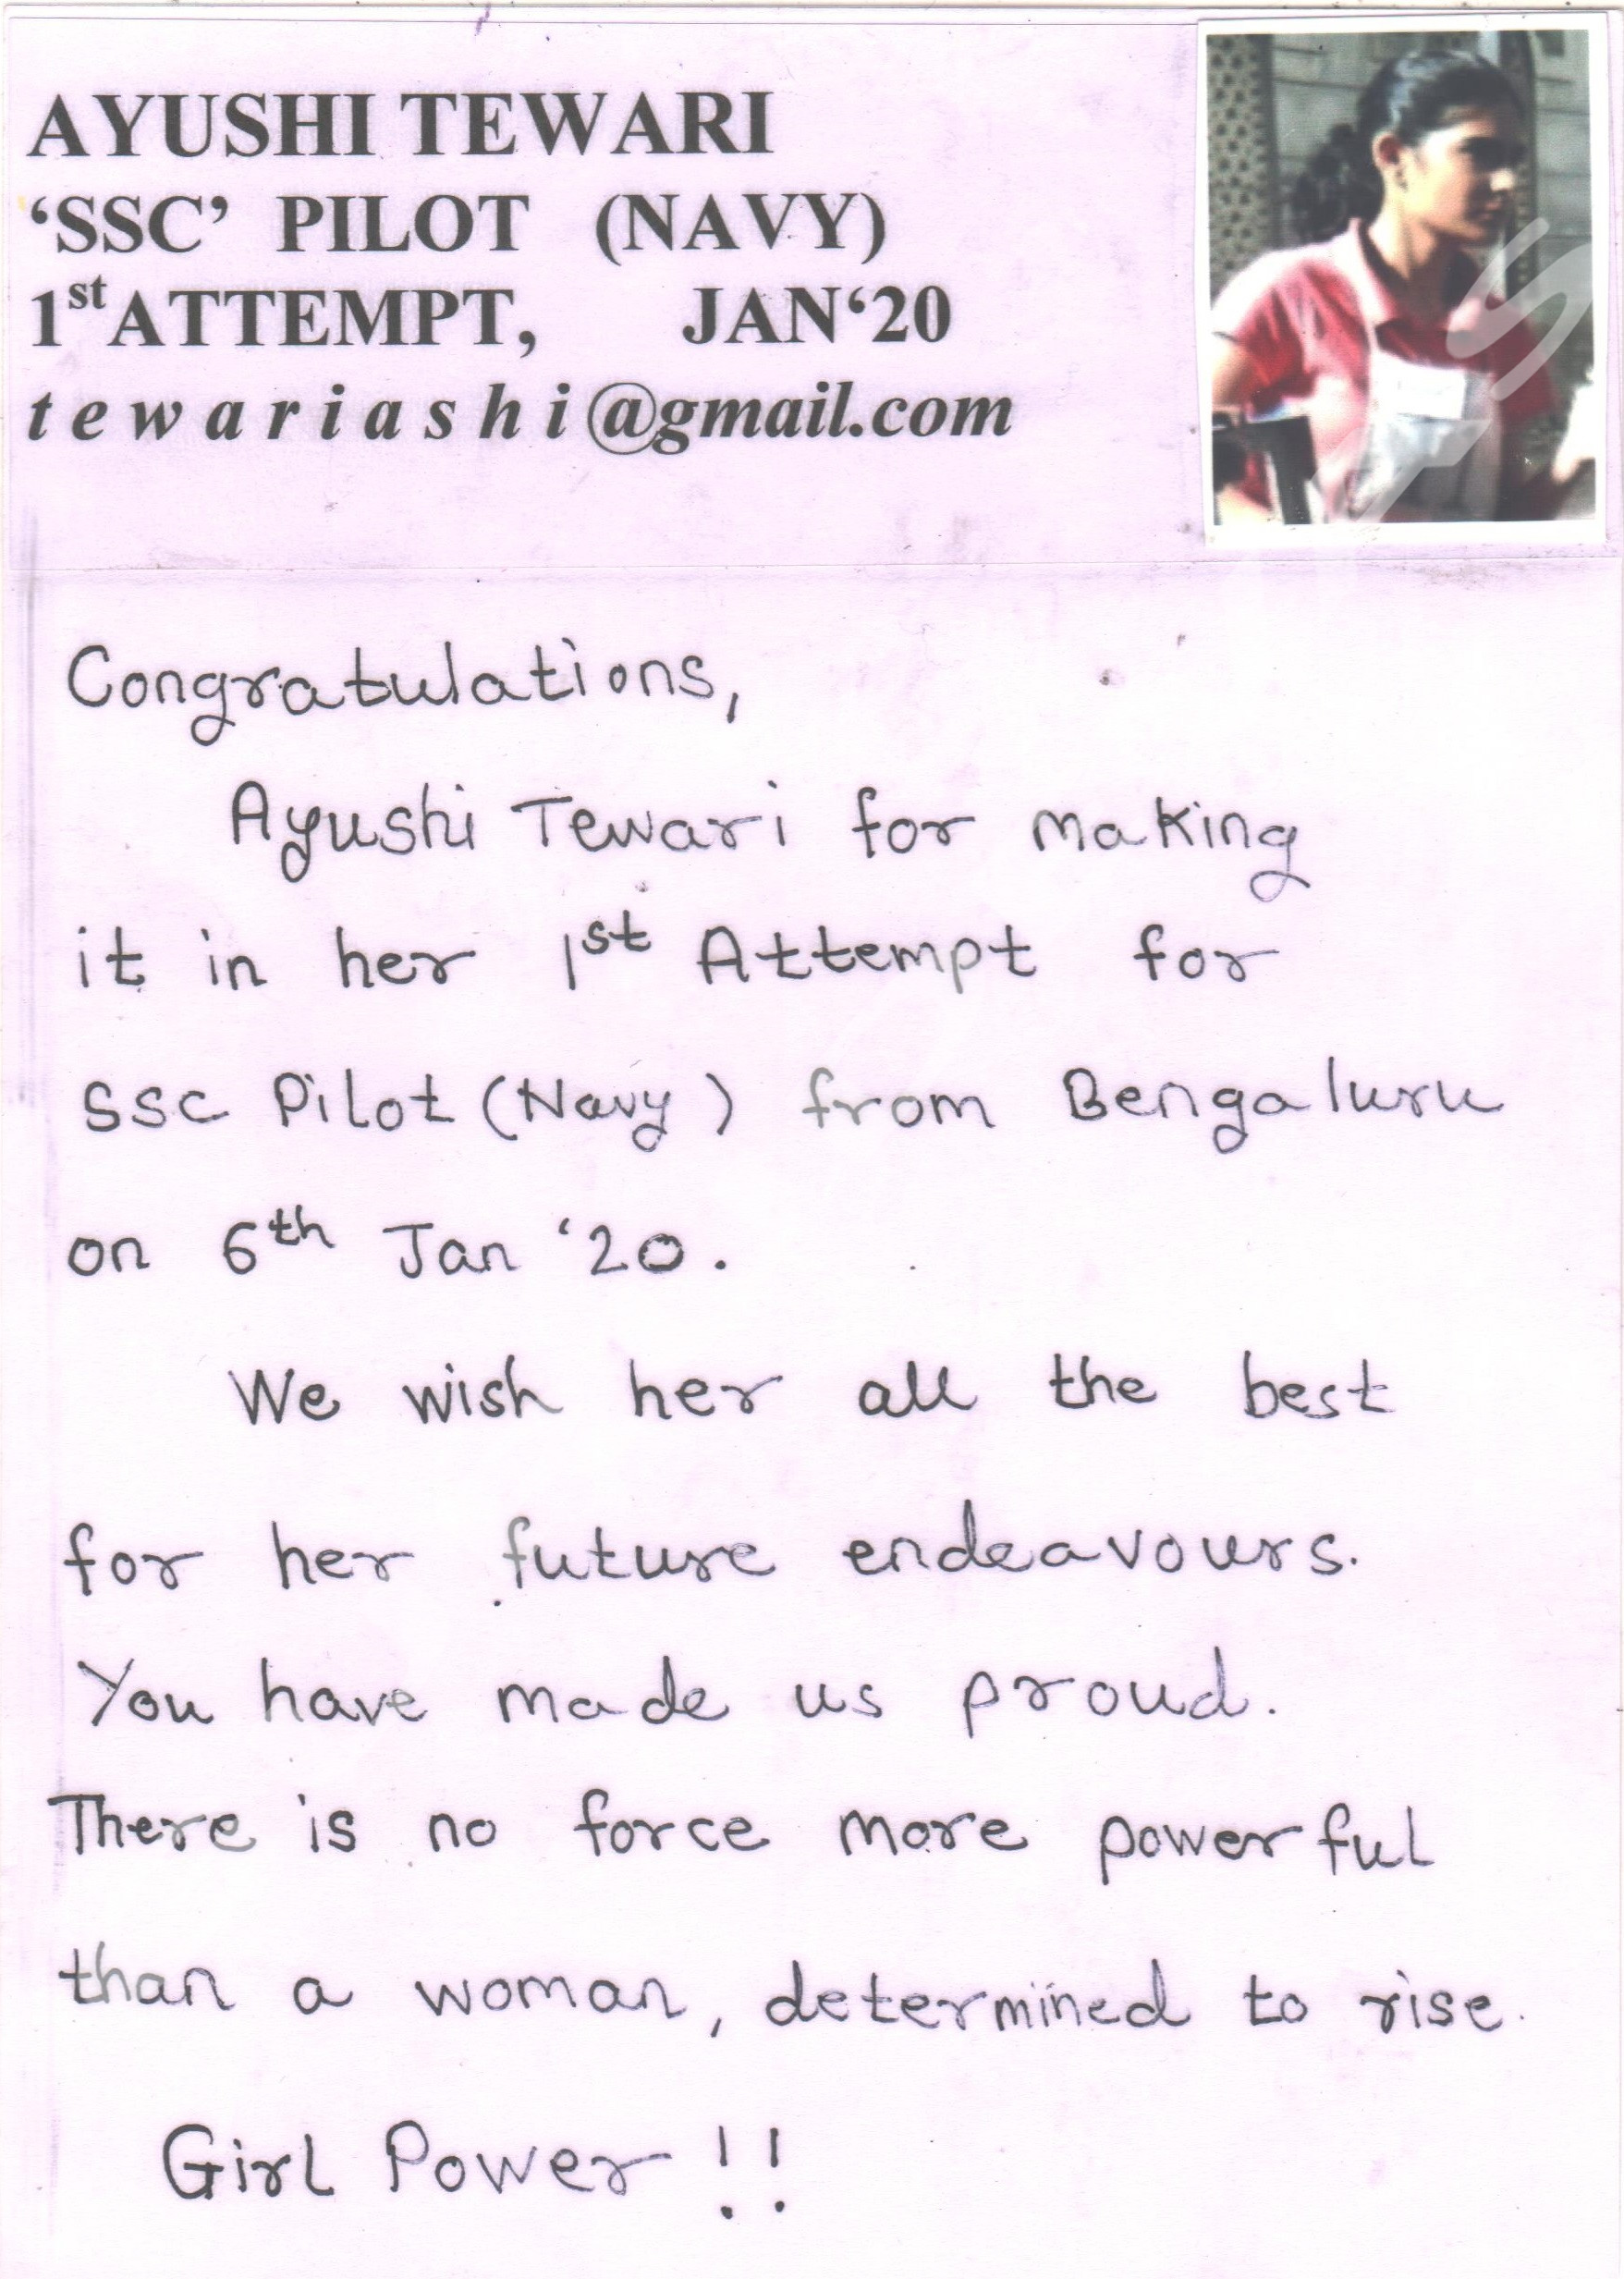 AYUSHI TEWARI
‘SSC’ PILOT (NAVY)
1st ATTEMPT, JAN‘20
tewariashi@gmail.com
Congratulations,
Ayushi Tewari for making
it in her 1st Attempt for
SSC Pilot (Navy) from Bengaluru
on 6th Jan ‘20.
We wish her all the best
for her future endeavours.
You have made us proud.
There is no force more powerful
than a woman, determined to rise.
Girl Power !!